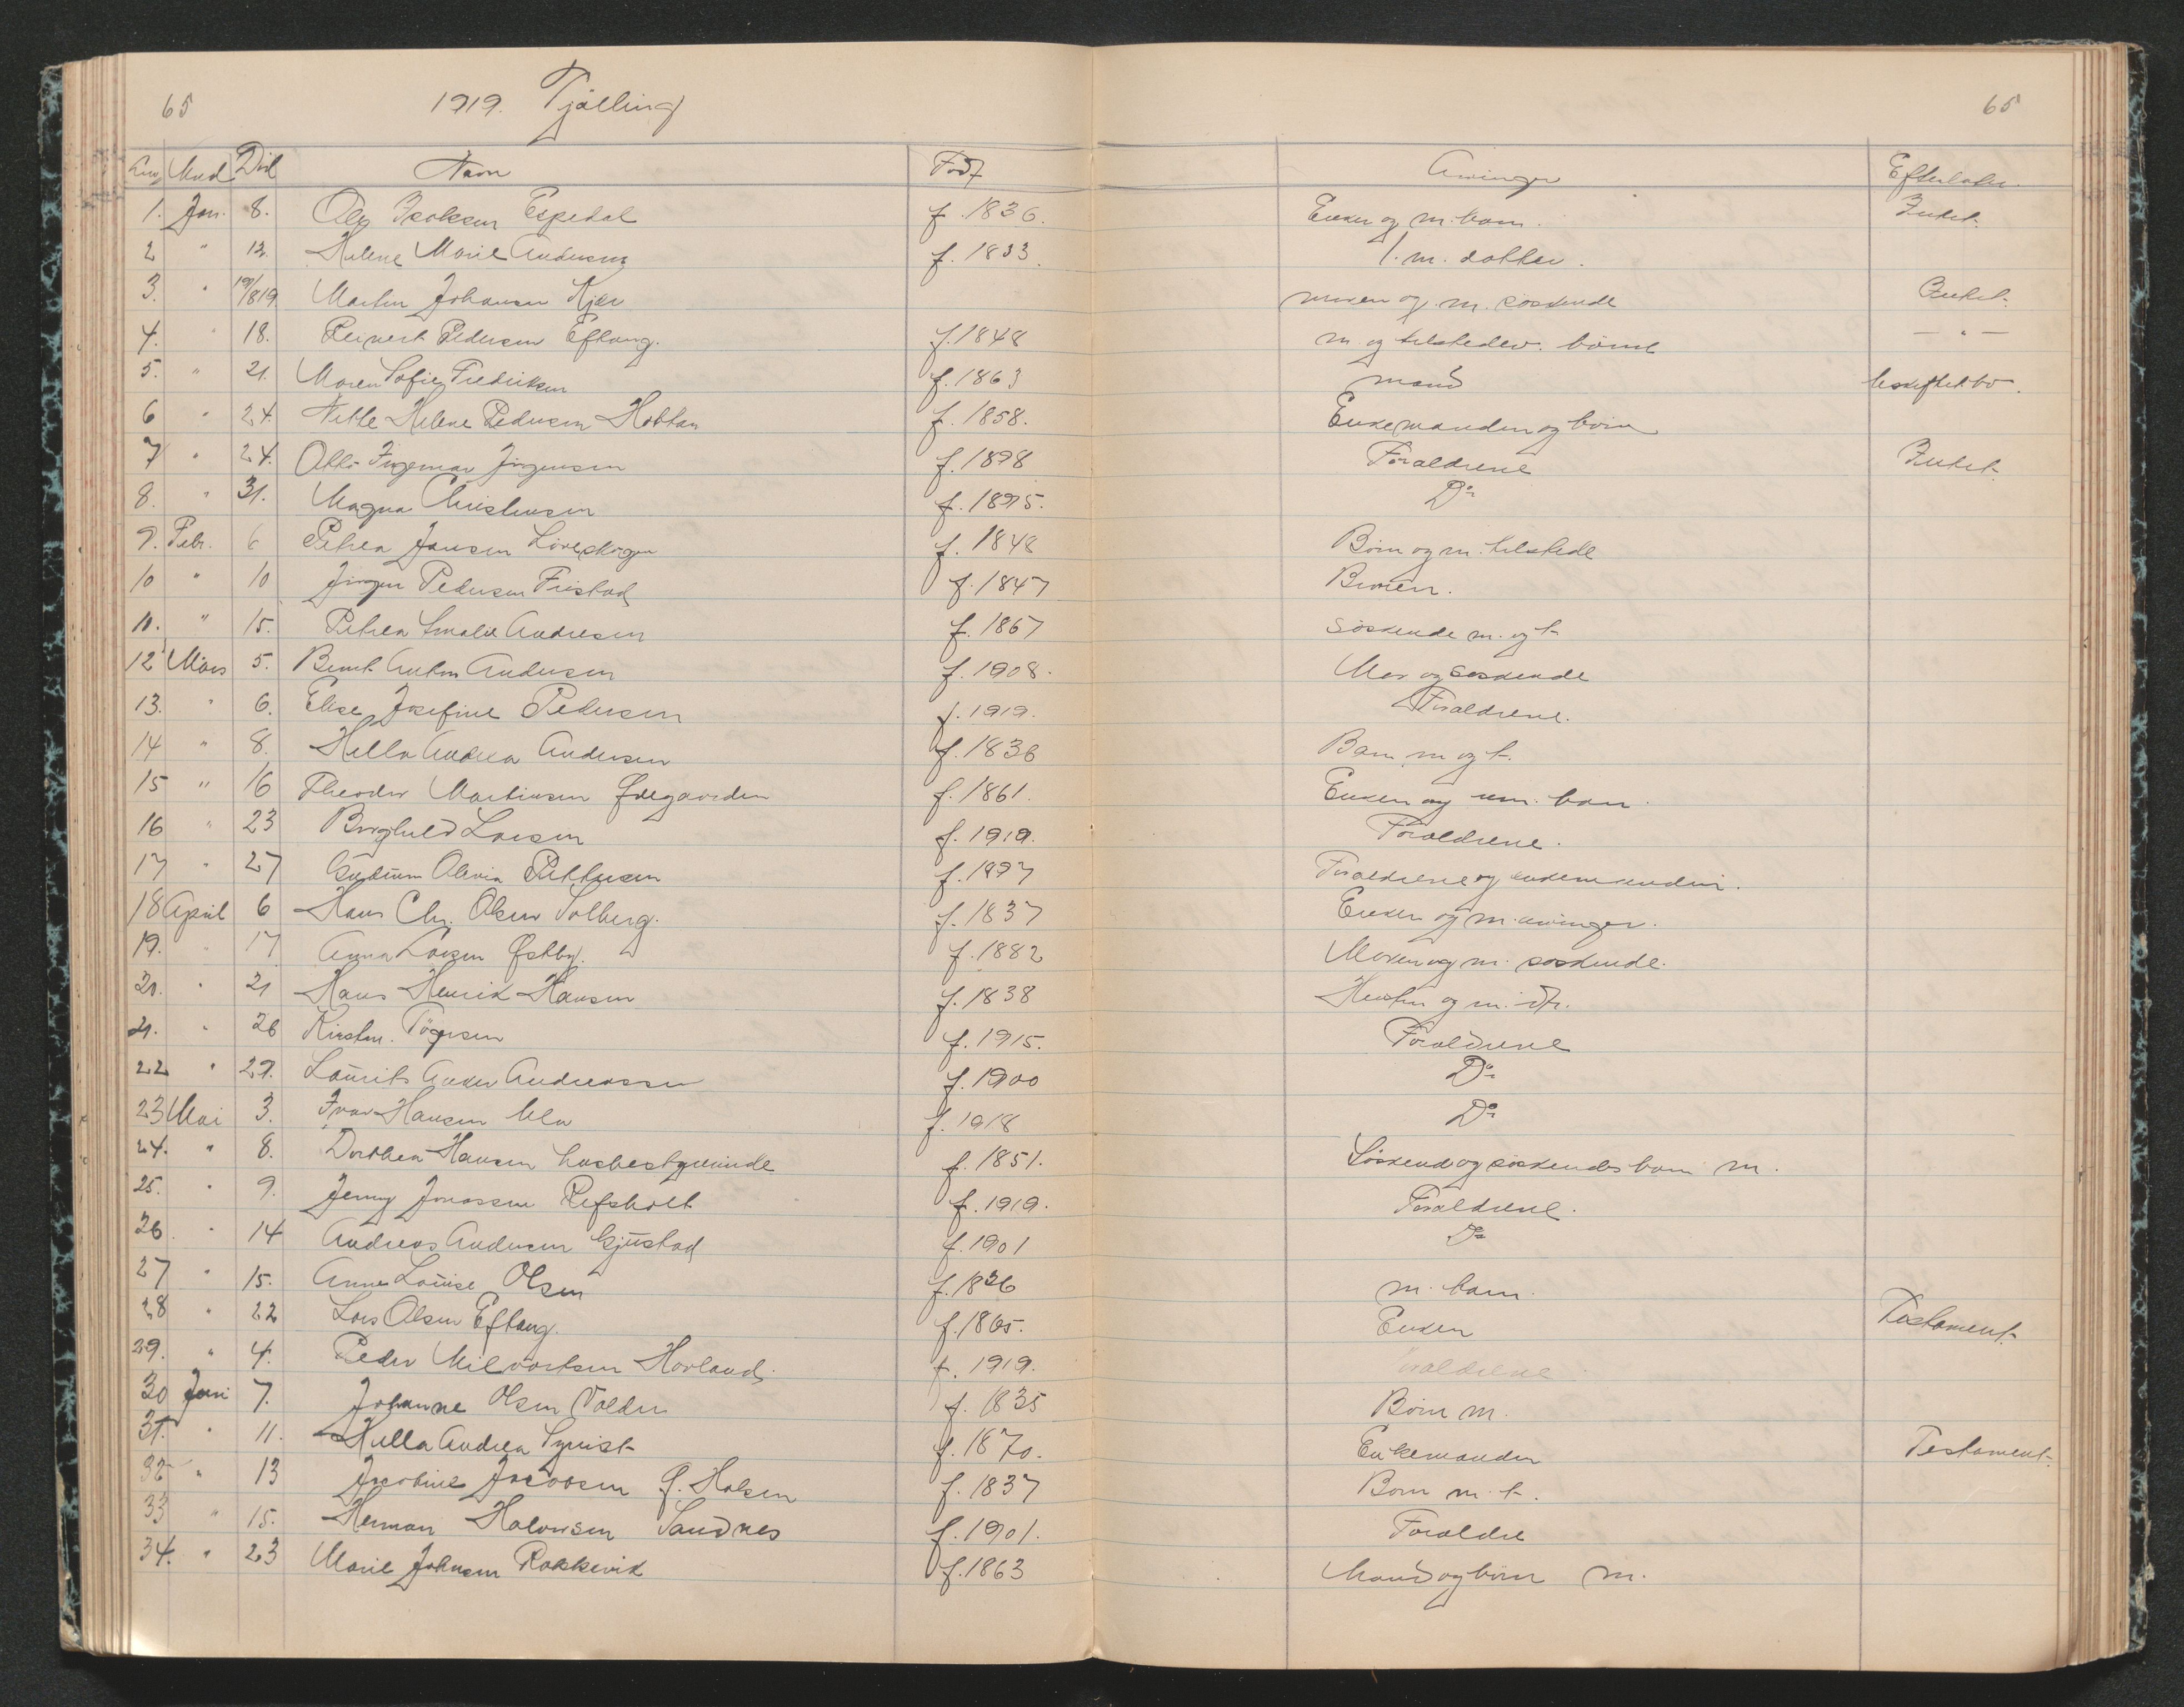 65 1919. Tjølling 65
Mnd Død Navn Født Arvinger Efterlater.
1. Jan. 8. Ole Isaksen Espedal f. 1836. Enken og m. barn. Intet.
2 " 12. Helene Marie Andersen f. 1833. 1. m. datter.
3. " Martin Johansen Kjær moren og m. søskende Intet.
4. " 18. Reinert Pedersen Eftang. f. 1848 m. og tilstedev. børn — " —
5. " 21. Maren Sofie Fredriksen f. 1863 mand uskiftet bo.
6 " 24. Helene Pedersen f. 1858. Enkemanden og børn
7 " 24. Otto Ingemar Jørgensen f. 1898 Forældrene Intet.
8. " 31. Magna Christensen f. 1895. Do
9. Febr. 6 Petrea Jansen Løveskogen f. 1848 Børn og m. tilstede
10 " 10 Jørgen Pedersen Fristad f. 1847 Broren.
11. " 15. Petrea Amalie Andresen f. 1867 søskende m. og t.
12 Mars 5. Bernt Anton Andersen f. 1908. Mor og søskende
13. " 6. Elise Josefine Pedersen f. 1919. Forældrene.
14 " 8. Hella Andrea Andersen f. 1836 Barn m og t.
15 " 16 Theodor Martinsen Ødegaarden f. 1861. Enken og um. barn.
16 " 23 Borghild Larsen f. 1919. Forældrene.
17 " 27 Gudrun Olavia Pettersen f. 1897 Forældrene og enkemanden.
18 April 6 Hans Chr. Olsen Solberg. f. 1837 Enken og m. arvinger.
19. " 17 Anna Larsen Østby. f. 1882 Moren og m. søskende.
20. " 21 Hans Henrik Hansen f. 1838 og m.
21. " 26 Kirsten Tøgersen f. 1915. Forældrene
22 " 29. Laurits Anker Andreassen f. 1900 Do
23 Mai 3. Ivar Hansen Ula f. 1918 Do
24. " 8. Dorthea Hansen husbestyrerinde f. 1851. Søskende og søskendes barn m.
25. " 9. Jenny Jonassen Refsholt f. 1919. Forældrene.
26. " 14 Andreas Andersen Gjustad f. 1901 Do
27 " 15. Anne Louise Olsen f. 1836 m. barn.
28 " 22 Lars Olsen Eftang. f. 1865. Enken Testament.
29. " 4. Peder Milvartsen Hovland. f. 1919. Forældrene
30 Juni 7. Johanne Olsen Valder f. 1835 Børn m.
31. " 11. Hella Andrea f. 1870. Enkemanden Testament.
32 " 13 Jacobine Jacobsen f. 1837 Børn m. t.
33 " 15. Herman Halvorsen Sandnes f. 1901. Forældre
34. " 23 Marie Johnsen Rakkevik f. 1863 Mand og børn m.